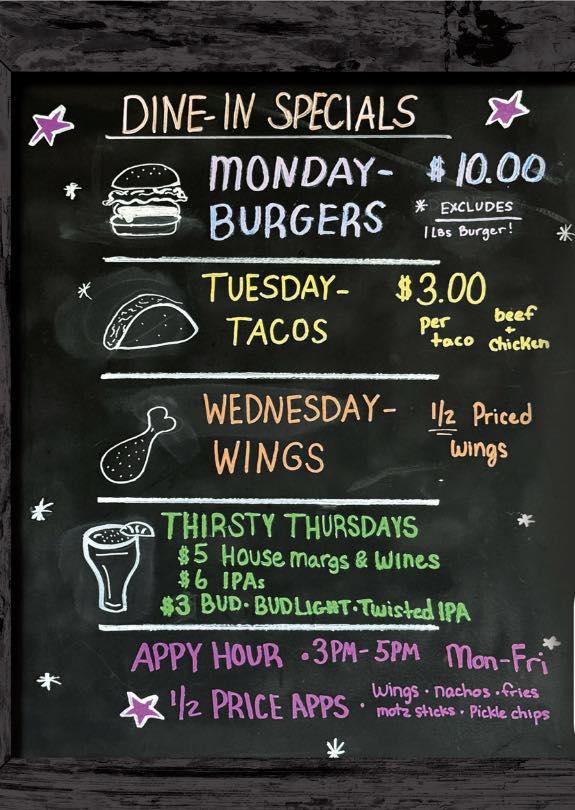 DINE-IN SPECIALS
MONDAY- $10.00
BURGERS * EXCLUDES
1 LBS Burger!
TUESDAY- $3.00
TACOS per taco beef + chicken
WEDNESDAY- 1/2 Priced
WINGS Wings
THIRSTY THURSDAYS
$5 House margs & Wines
$6 IPAs
$3 BUD · BUDLIGHT · Twisted IPA
APPY HOUR · 3PM-5PM Mon-Fri
1/2 PRICE APPS · Wings · nachos · fries
motz sticks · Pickle chips